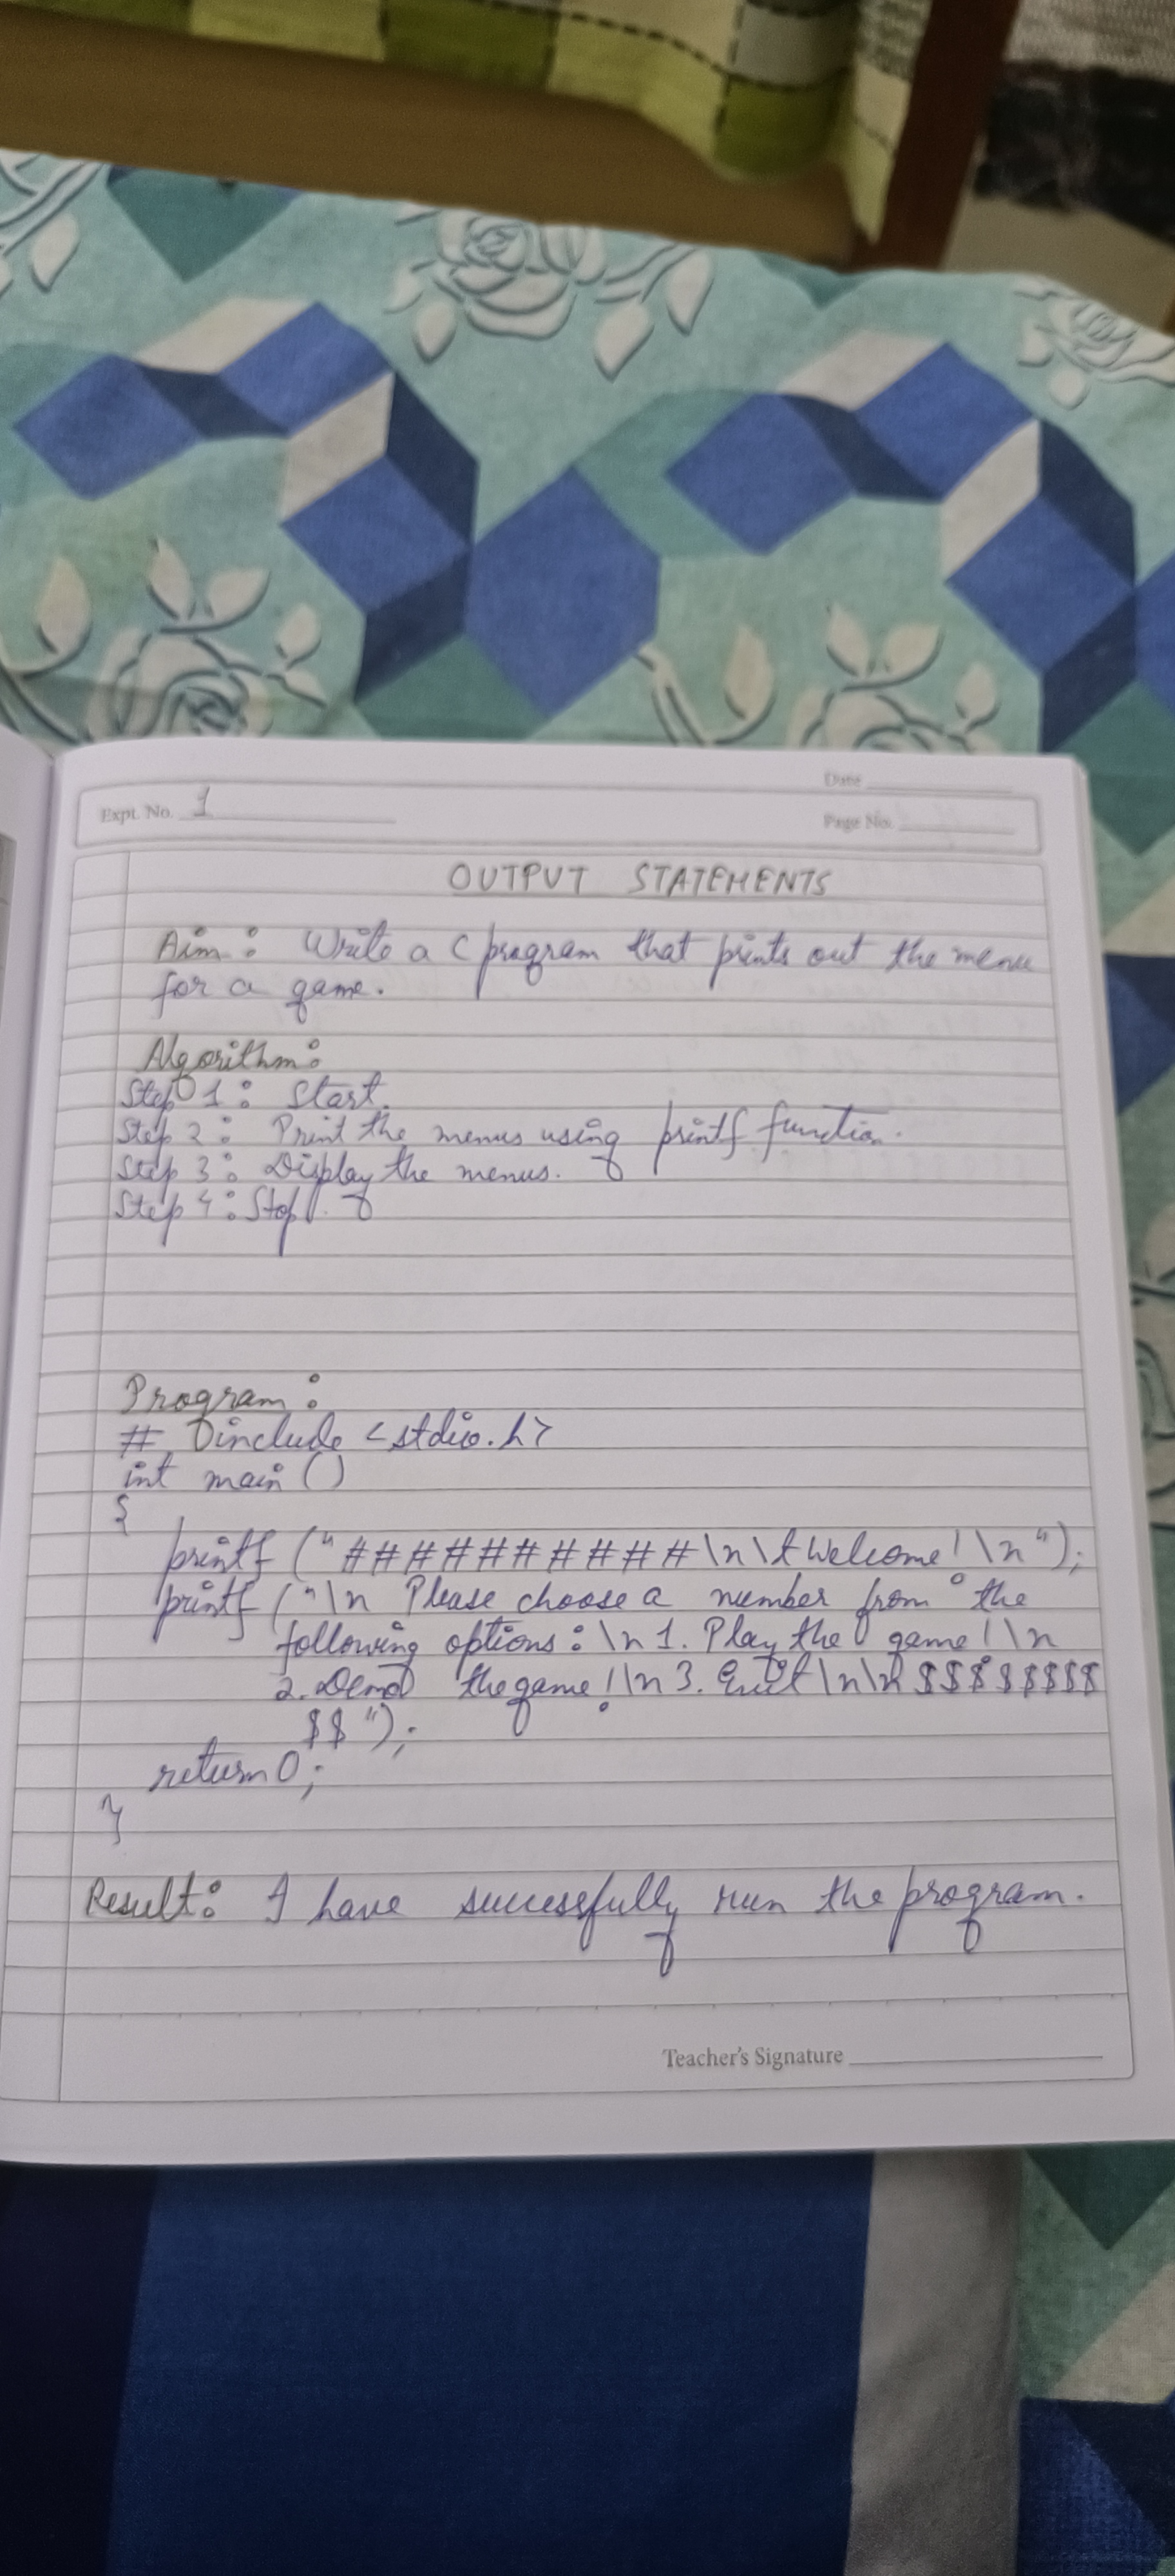 Date
Expt. No. 1
Page No.
OUTPUT STATEMENTS
Aim : Write a C program that prints out the menu
for a game.
Algorithm :
Step 1 : Start.
Step 2 : Print the menus using printf function.
Step 3 : Display the menus.
Step 4 : Stop.
Program :
# include <stdio.h>
int main ()
{
printf ("###########\n\t Welcome! \n");
printf ("\n Please choose a number from the
following options : \n 1. Play the game! \n
2. Demo the game! \n 3. Exit \n\n $$$$$$$$$
$$");
return 0;
}
Result : I have successfully run the program.
Teacher's Signature